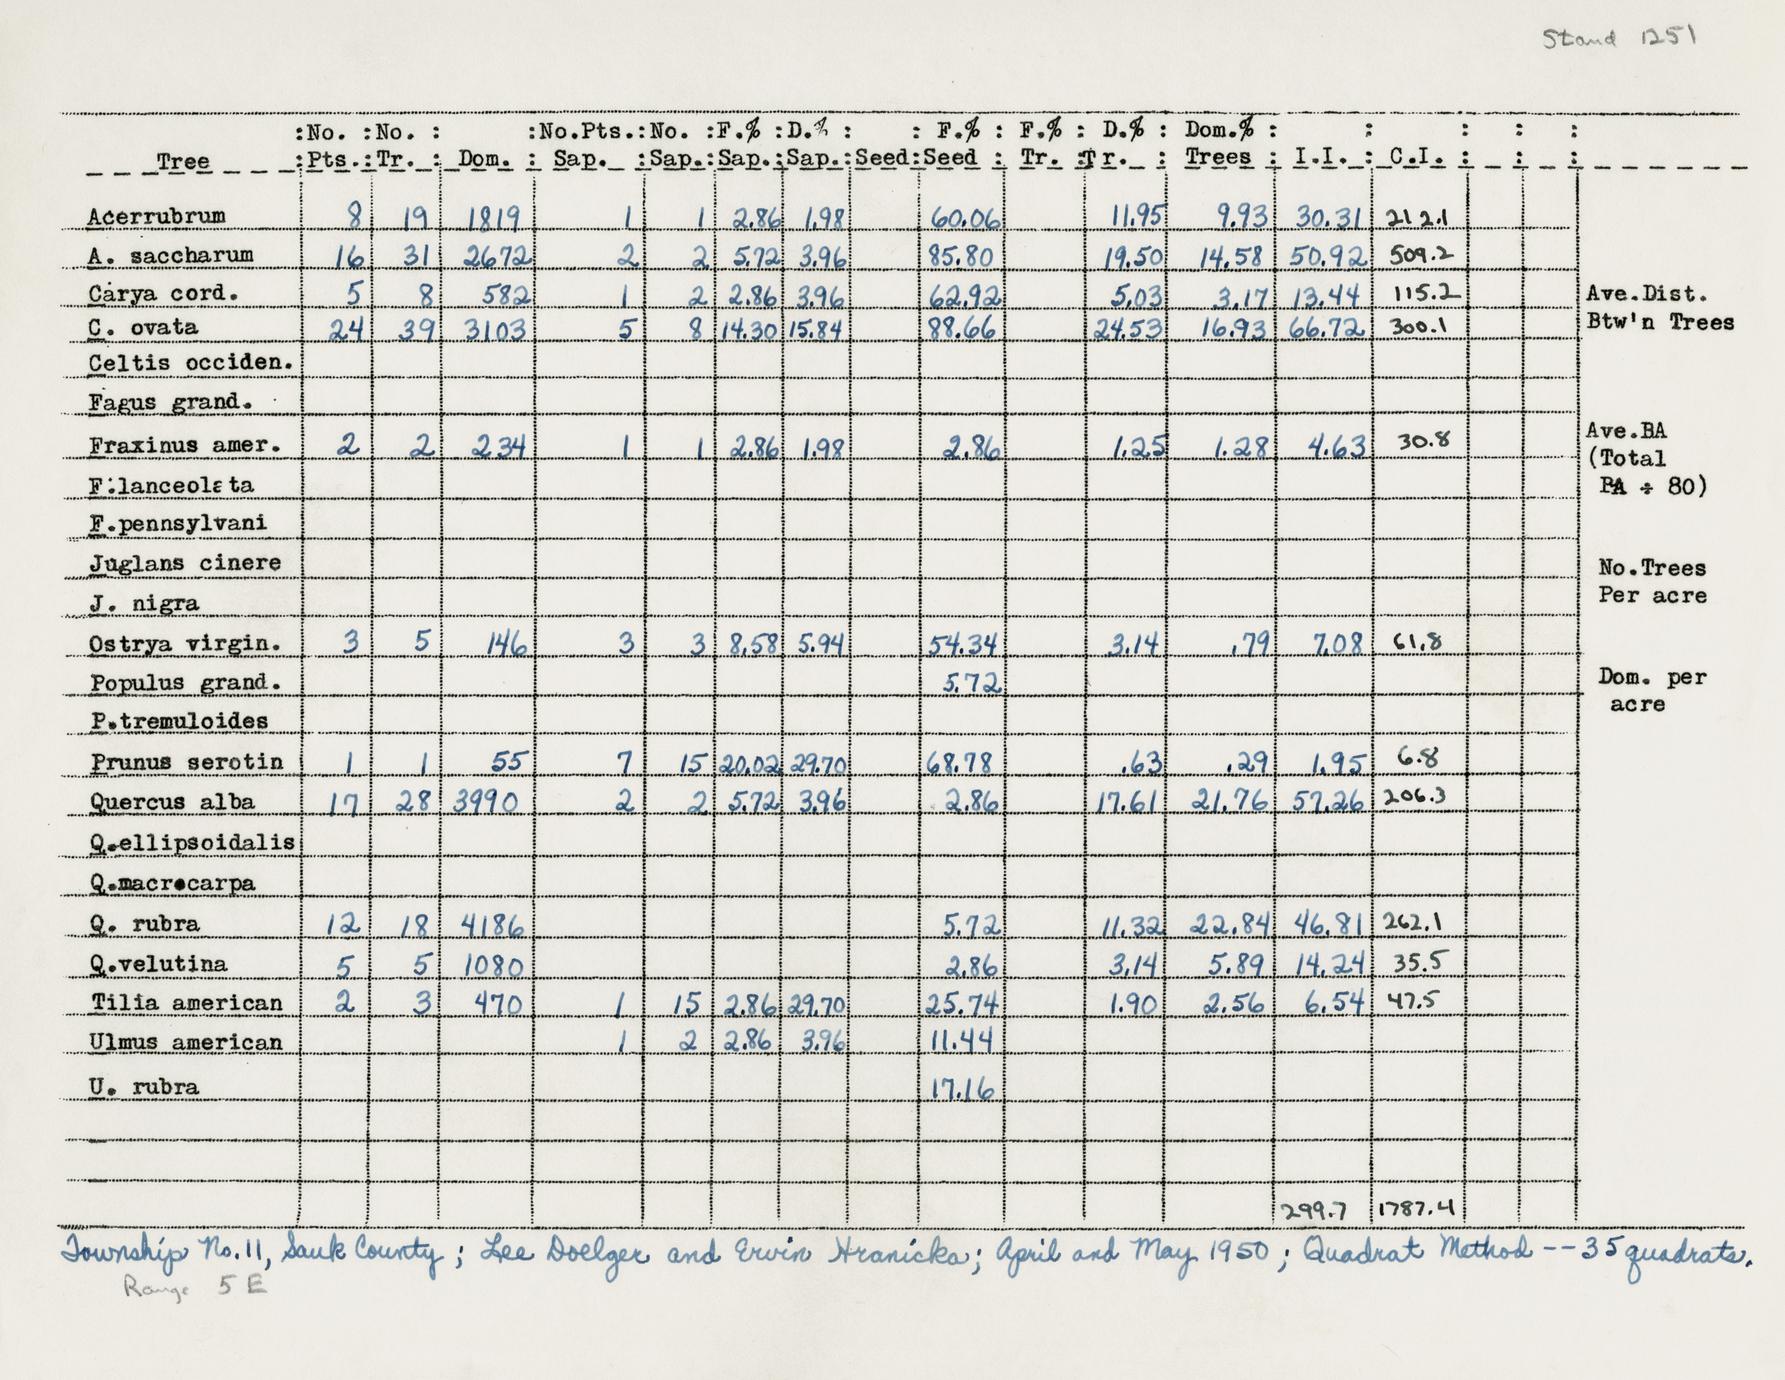 Stand 1251
:No. :No. : :No.Pts.:No. :F.% :D.% : : F.% : F.% : D.% : Dom.% : : : : :
Tree :Pts.:Tr. : Dom. : Sap. :Sap.:Sap.:Sap.:Seed:Seed : Tr. :Tr. : Trees : I.I. : C.I. : : :
Acerrubrum 8 19 1819 1 1 2.86 1.98 60.06 11.95 9.93 30.31 212.1
A. saccharum 16 31 2672 2 2 5.72 3.96 85.80 19.50 14.58 50.92 509.2
Carya cord. 5 8 582 1 2 2.86 3.96 62.92 5.03 3.17 13.44 115.2 Ave.Dist.
C. ovata 24 39 3103 5 8 14.30 15.84 88.66 24.53 16.93 66.72 300.1 Btw'n Trees
Celtis occiden.
Fagus grand.
Fraxinus amer. 2 2 234 1 1 2.86 1.98 2.86 1.25 1.28 4.63 30.8 Ave.BA
(Total
F.lanceolata BA ÷ 80)
F.pennsylvani
Juglans cinere No.Trees
J. nigra Per acre
Ostrya virgin. 3 5 146 3 3 8.58 5.94 54.34 3.14 .79 7.08 61.8
Populus grand. 5.72 Dom. per
acre
P.tremuloides
Prunus serotin 1 1 55 7 15 20.02 29.70 68.78 .63 .29 1.95 6.8
Quercus alba 17 28 3990 2 2 5.72 3.96 2.86 17.61 21.76 57.26 206.3
Q.ellipsoidalis
Q.macrocarpa
Q. rubra 12 18 4186 5.72 11.32 22.84 46.81 262.1
Q.velutina 5 5 1080 2.86 3.14 5.89 14.24 35.5
Tilia american 2 3 470 1 15 2.86 29.70 25.74 1.90 2.56 6.54 47.5
Ulmus american 1 2 2.86 3.96 11.44
U. rubra 17.16
299.7 1787.4
Township No.11, Sauk County; Lee Doelger and Ervin Hranicka; April and May 1950; Quadrat Method -- 35 quadrats.
Range 5 E